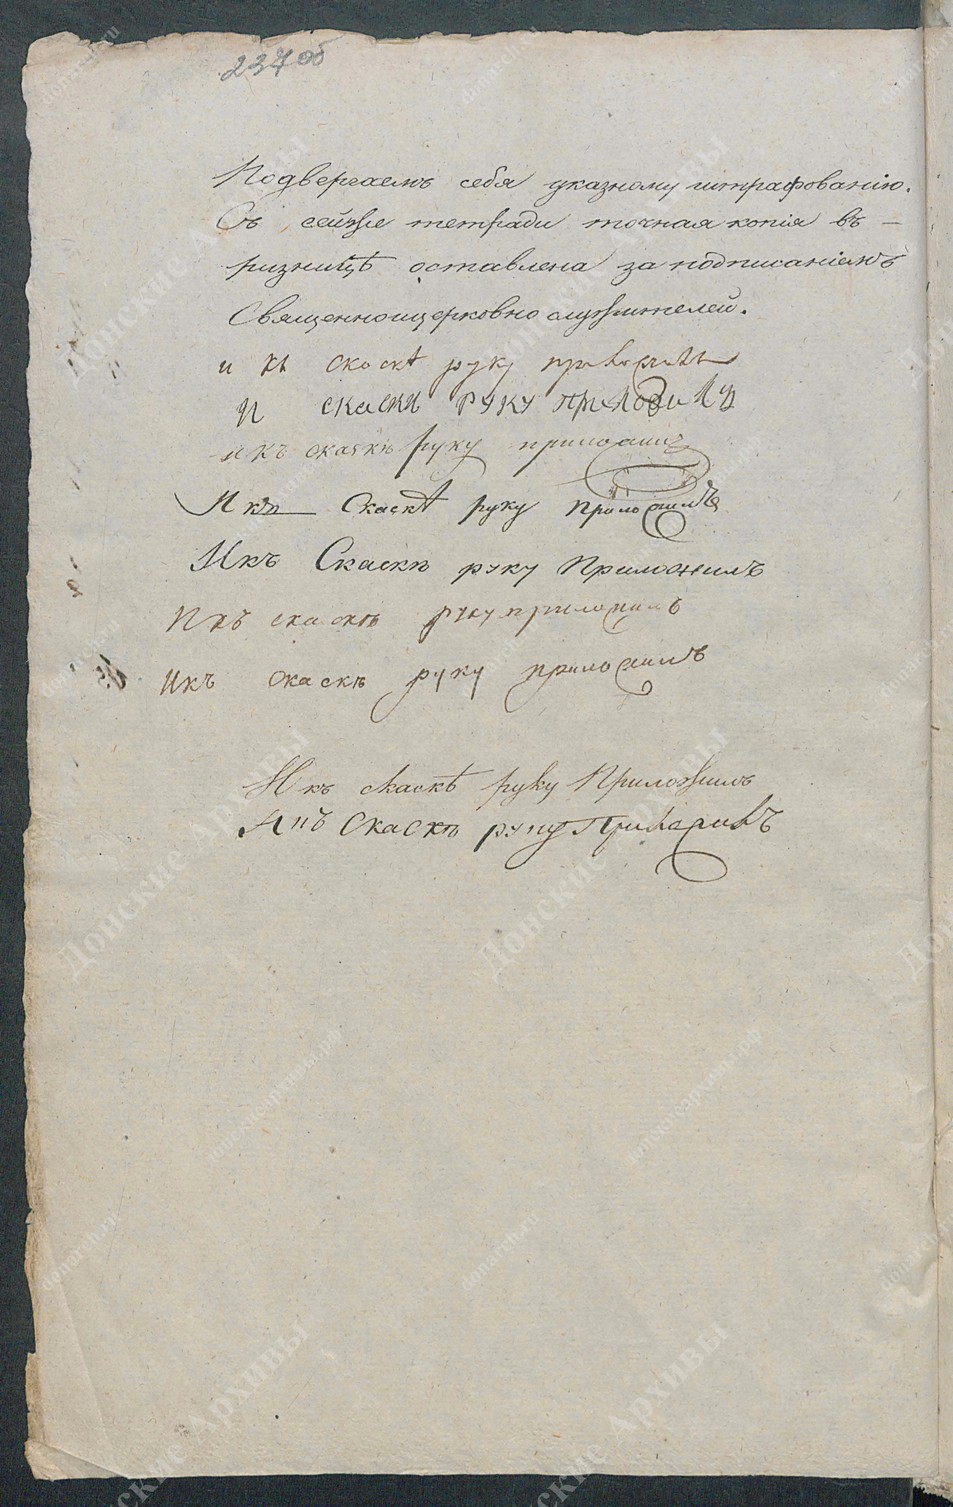 237 об
Подвергаемъ себя указному штрафованію.
Съ сейже тетради точная копія въ –
ризницѣ оставлена за подписаніемъ
Священноицерковно служителей.
и къ скаскѣ руку приложилъ
И скаски руку приложилъ
икъ скаскѣ руку приложилъ
Икъ Скаскѣ руку приложилъ
Икъ Скаскѣ руку Приложилъ
Икъ скаскѣ руку приложилъ
Икъ скаскѣ руку приложилъ
Икъ скаскѣ руку Приложилъ
Икъ Скаскѣ руку Приложилъ
Донские Архивы
donarch.ru
донскиеархивы.рф